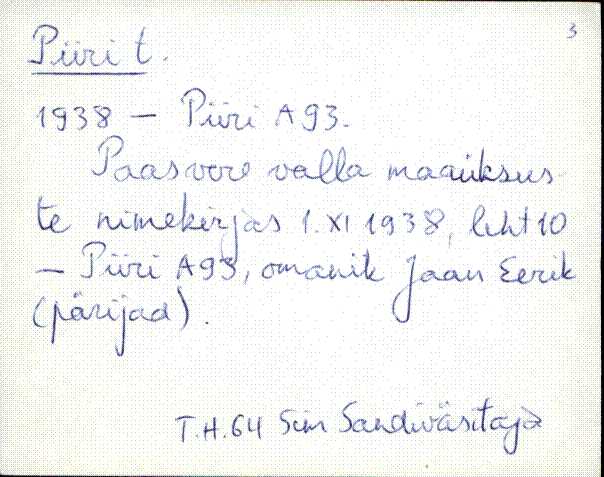 3
Piiri t.
1938 – Piiri A93.
Paasvere valla maaüksus-
te nimekirjas 1.XI 1938, leht 10
– Piiri A93, omanik Jaan Eerik
(pärijad).
T.H.64 Sim